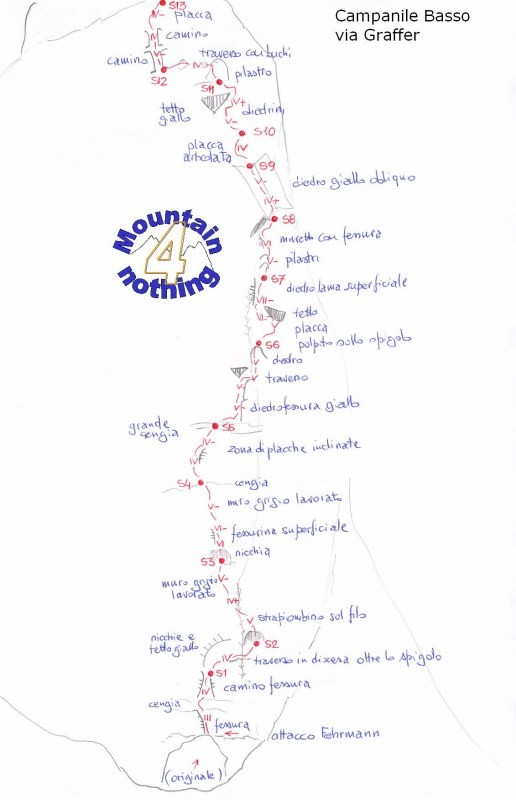 Campanile Basso
via Graffer
S13
placca
IV-
camino
V-
camino
S12
traverso con buchi
IV
pilastro
S11
tetto
giallo
IV+
diedrini
V-
S10
placca
articolata
IV
S9
V-
diedro giallo obliquo
IV+
S8
muretto con fessura
VI
pilastri
V-
S7
diedro lama superficiale
VII-
tetto
VI-
placca
V
S6
pulpito sullo spigolo
diedro
V
traverso
V-
diedro fessura giallo
V-
grande
cengia
S5
IV-
zona di placche inclinate
IV
S4
cengia
V-
muro grigio lavorato
VI-
fessurina superficiale
VI
nicchia
S3
V-
muro grigio
lavorato
IV+
V
strapiombino sul filo
nicchie e
tetto giallo
S2
IV
traverso in discesa oltre lo spigolo
S1
IV
camino fessura
cengia
III
fessura
attacco Fehrmann
(originale)
Mountain
4
nothing